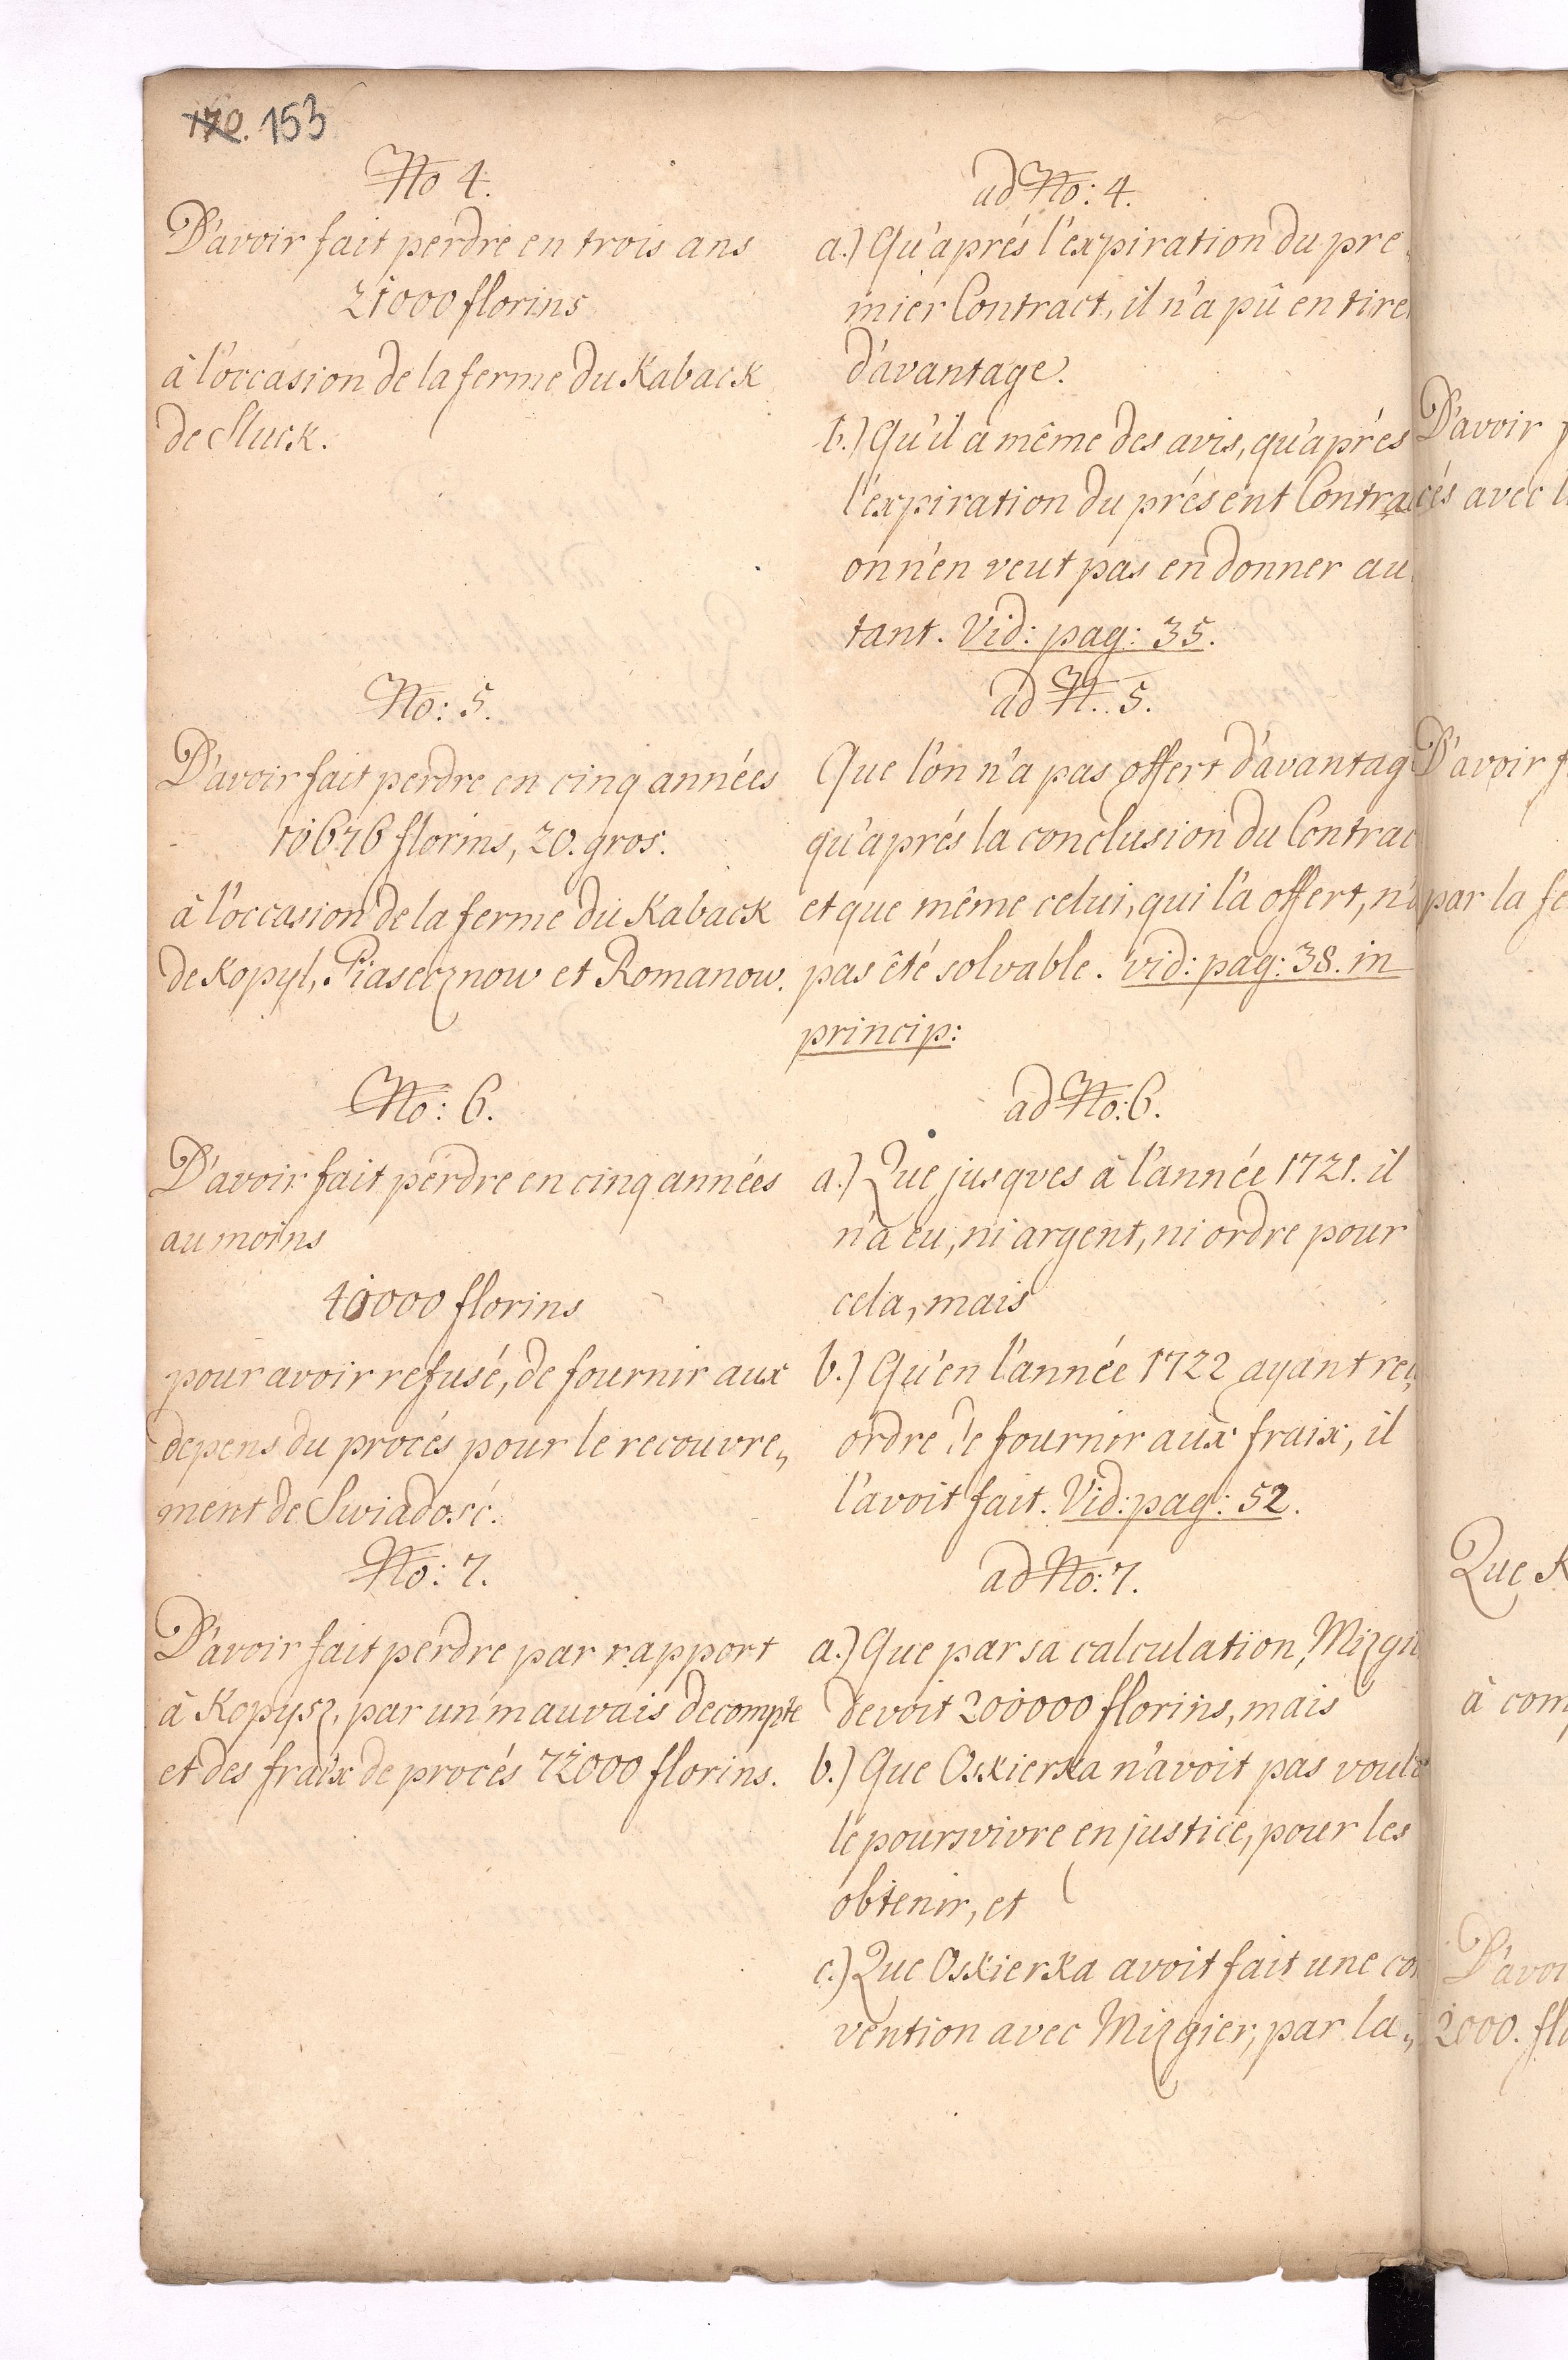 170. 153
No 4.
D'avoir fait perdre en trois ans
21000 florins
à l'occasion de la ferme du Kaback
de Sluck.
No: 5.
D'avoir fait perdre en cinq années
florins, 20. gros.
à l'occasion de la ferme du Kaback
de Kopyl, Piasecznow et Romanow.
No: 6.
D'avoir fait perdre en cinq années
au moins
40000 florins
pour avoir refusé, de fournir aux
depens du procés pour le recouvre„
ment de Swiadość.
No: 7.
D'avoir fait perdre par rapport
à Kopysz, par un mauvais decompte
et des fraix de procés 72000 florins.
ad No: 4.
a.) Qu'aprés l'expiration du pre
mier Contract, il n'a pû en tirer
d'avantage.
b.) Qu'il a même des avis, qu'aprés
l'expiration du présent Contra
on n'en veut pas en donner au
tant. Vid: pag: 35.
ad N. 5.
Que l'on n'a pas offert d'avantag
qu'aprés la conclusion du Contrac
et que même celui, qui l'a offert, n'
pas été solvable. vid: pag: 38. in
princip:
ad No: 6.
a.) Que jusques à l'année 1721. il
n'a eu, ni argent, ni ordre pour
cela, mais
b.) Qu'en l'année 1722 ayant reç
ordre de fournir aux fraix, il
l'avoit fait. Vid: pag: 52.
ad No: 7.
a.) Que par sa calculation, Mizgi
devoit 200000 florins, mais
b.) Que Oskierka n'avoit pas voul
le poursvivre en justice, pour les
obtenir, et
c.) Que Oskierka avoit fait une con
vention avec Mizgier, par la„
D'avoir
cés avec l
D'avoir f
par la fe
Que K
à com
D'avoi
2000. flo